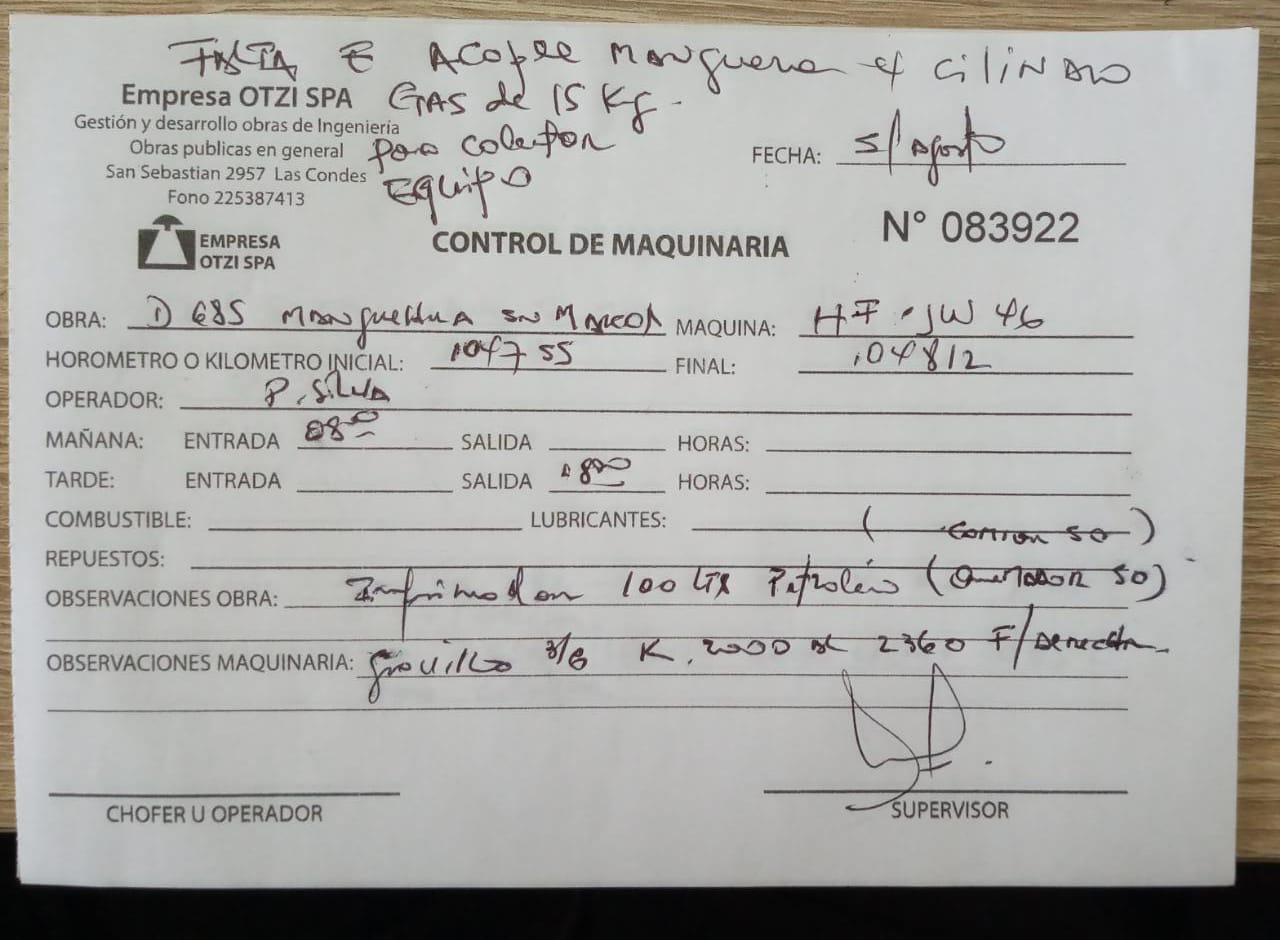 FALTA E ACOPLE MANGUERA y CILINDRO
GAS de 15 Kg.
para calefon
EQUIPO
Empresa OTZI SPA
Gestión y desarrollo obras de Ingeniería
Obras publicas en general
San Sebastian 2957 Las Condes
Fono 225387413
FECHA: 5/Agosto
EMPRESA
OTZI SPA
CONTROL DE MAQUINARIA
N° 083922
OBRA: D 685 MANQUEHUA SN MARCOS MAQUINA: HF·JW 46
HOROMETRO O KILOMETRO INICIAL: 104755 FINAL: 104812
OPERADOR: P. SILVA
MAÑANA: ENTRADA 08:00 SALIDA HORAS:
TARDE: ENTRADA SALIDA 1800 HORAS:
COMBUSTIBLE: LUBRICANTES:
( Camion 50 )
REPUESTOS:
OBSERVACIONES OBRA: Imprimacion 100 LTR Petroleo (Quemador 50)
OBSERVACIONES MAQUINARIA: Gravilla 3/8 K. 2000 AL 2360 F/Derecha
CHOFER U OPERADOR
SUPERVISOR